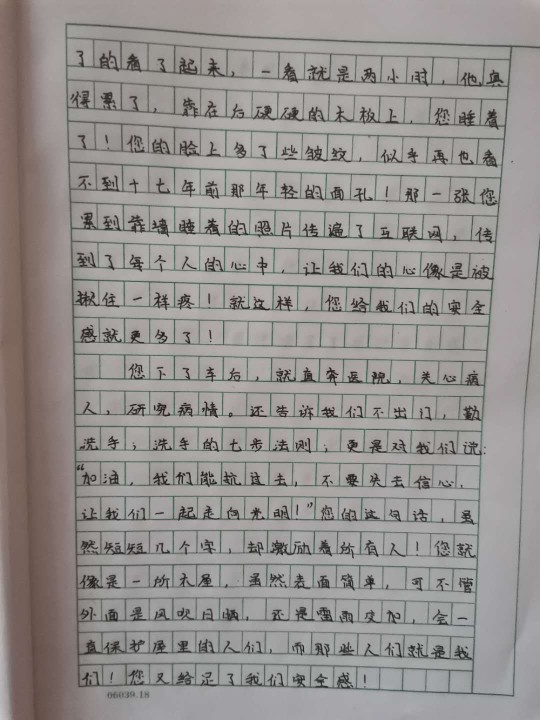 了的看了起来，一看就是两小时，他真
得累了，靠在后硬硬的木板上，您睡着
了！您的脸上多了些皱纹，似乎再也看
不到十七年前那年轻的面孔！那一张您
累到靠墙睡着的照片传遍了互联网，传
到了每个人的心中，让我们的心像是被
揪住一样疼！就这样，您给我们的安全
感就更多了！
您下了车后，就直奔医院，关心病
人，研究病情。还告诉我们不出门，勤
洗手；洗手的七步法则；更是对我们说：
“加油，我们能抗过去，不要失去信心，
让我们一起走向光明！”您的这句话，虽
然短短几个字，却激励着所有人！您就
像是一所木屋，虽然表面简单，可不管
外面是风吹日晒，还是雷雨交加，会一
直保护屋里的人们，而那些人们就是我
们！您又给足了我们安全感！
06039.18